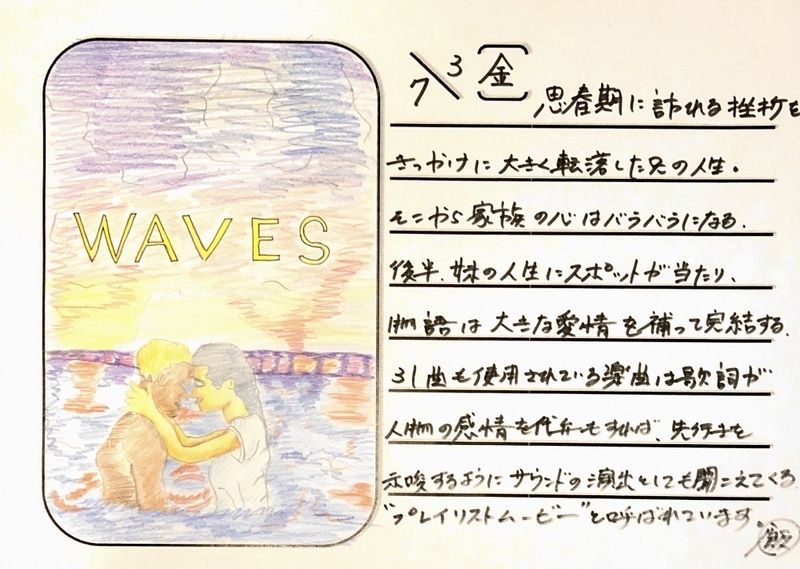 WAVES
7/3 [金]
思春期に訪れる挫折を
きっかけに大きく転落した兄の人生。
そこから家族の心はバラバラになる。
後半、妹の人生にスポットが当たり、
物語は大きな愛情を補って完結する。
31曲も使用されている楽曲は歌詞が
人物の感情を代弁もすれば、先行きを
示唆するようにサウンドの演出としても聞こえてくる
"プレイリストムービー"と呼ばれています。